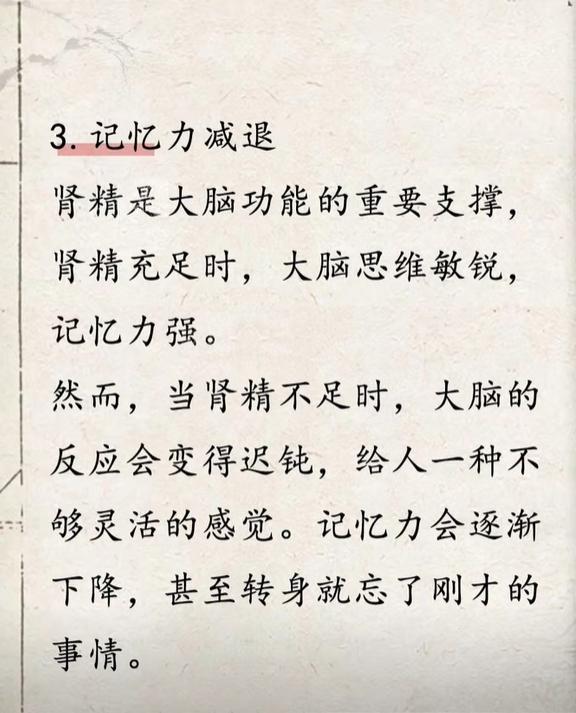 3. 记忆力减退
肾精是大脑功能的重要支撑，
肾精充足时，大脑思维敏锐，
记忆力强。
然而，当肾精不足时，大脑的
反应会变得迟钝，给人一种不
够灵活的感觉。记忆力会逐渐
下降，甚至转身就忘了刚才的
事情。